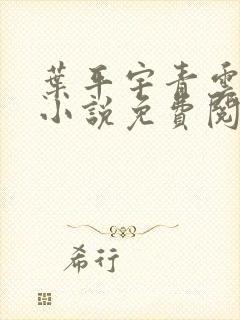 葉平宇青雲
小說免費閱
希行